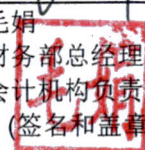 毛娟
财务部总经理
会计机构负责
(签名和盖章
毛娟